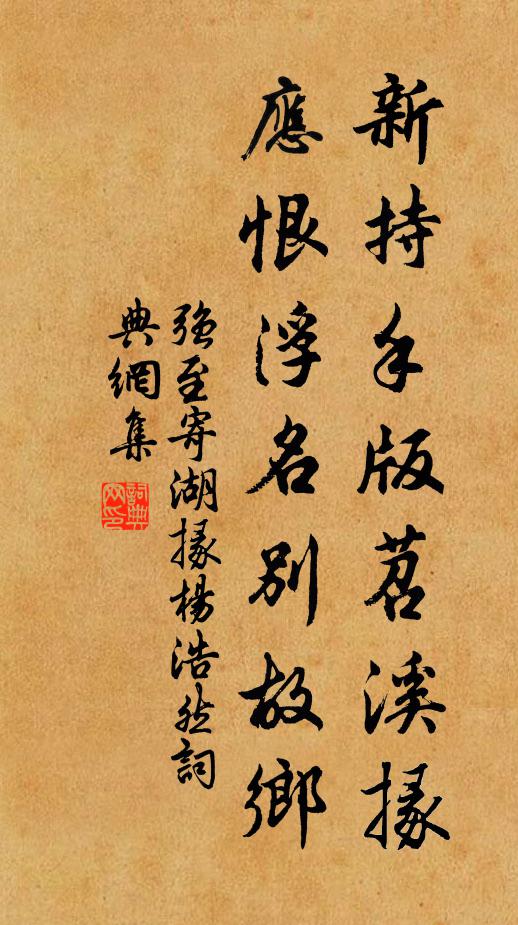 新持手版苕溪掾
應恨浮名別故鄉
強至寄湖掾楊浩然詞
典網集
詞典
网印